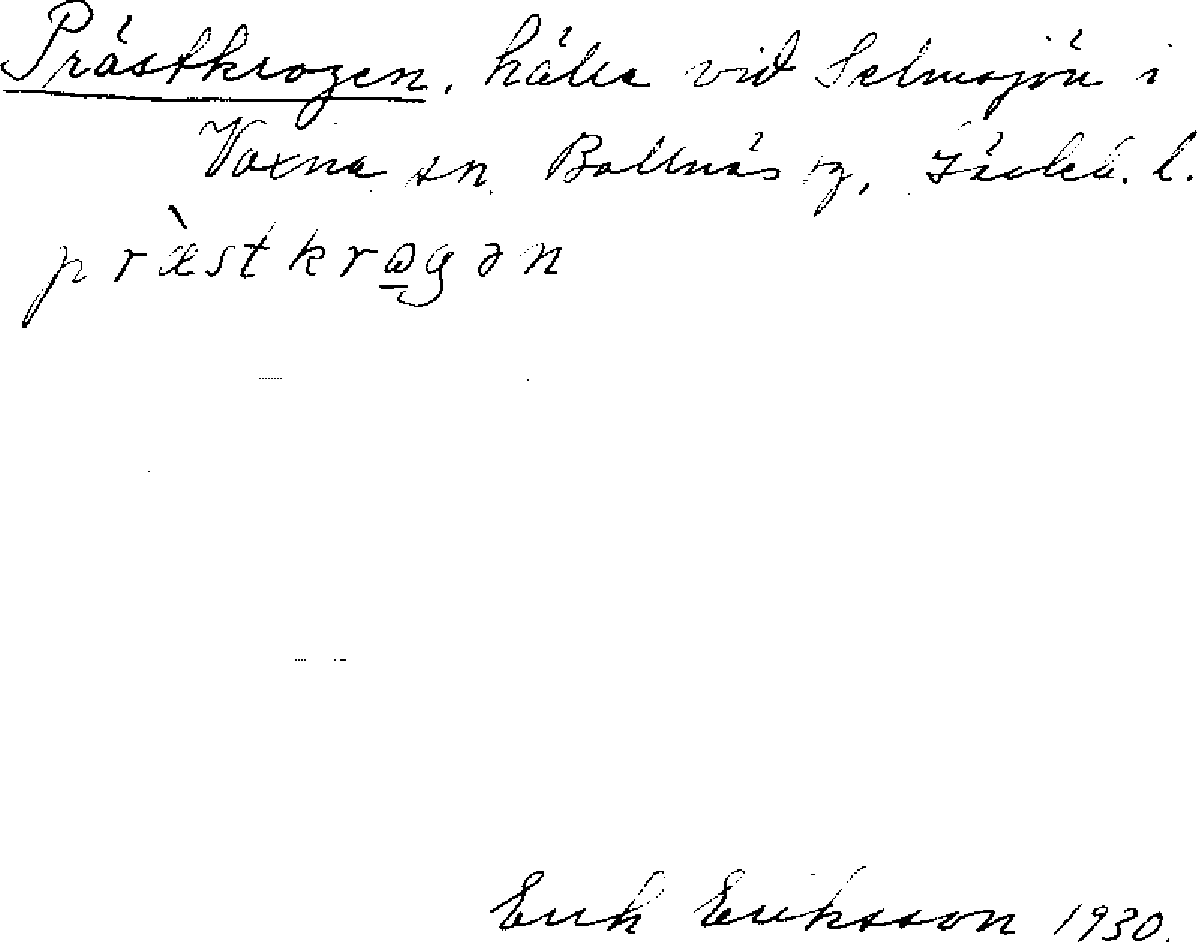 Prästkrogen, vid Selmsjön i
Voxna sn. Bollnäs tg, Gävleb. l.
præ̀stkrɷgən
Erik Eriksson 1930.